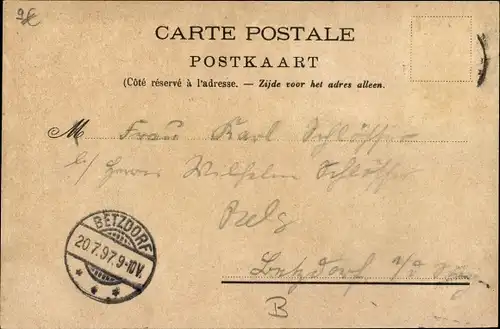 CARTE POSTALE
POSTKAART
(Côté réservé à l'adresse. — Zijde voor het adres alleen.
M Frau Karl Schlösser
b/ Herrn Wilhelm Schlösser
Betzdorf
BETZDORF
20.7.97.9-10V.
B